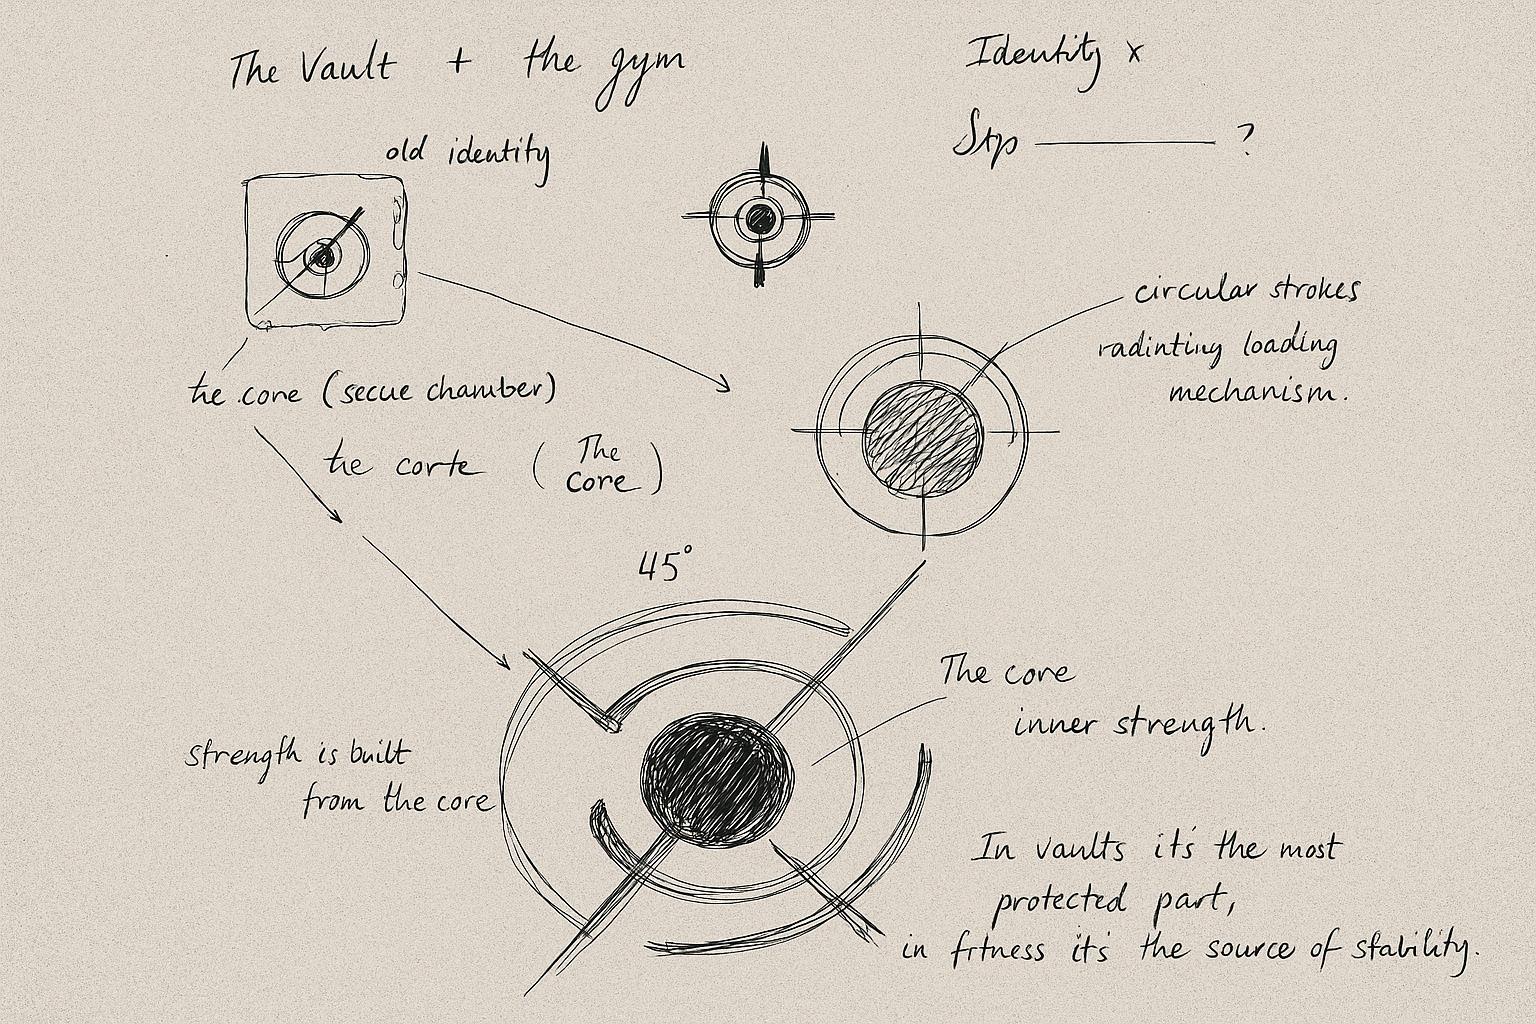 The Vault + the gym
Identity x
old identity
Stp ———— ?
circular strokes
radinting loading
mechanism.
the core (secue chamber)
the corte (The
Core)
45°
The core
inner strength.
strength is built
from the core
In vaults it's the most
protected part,
in fitness it's the source of stability.